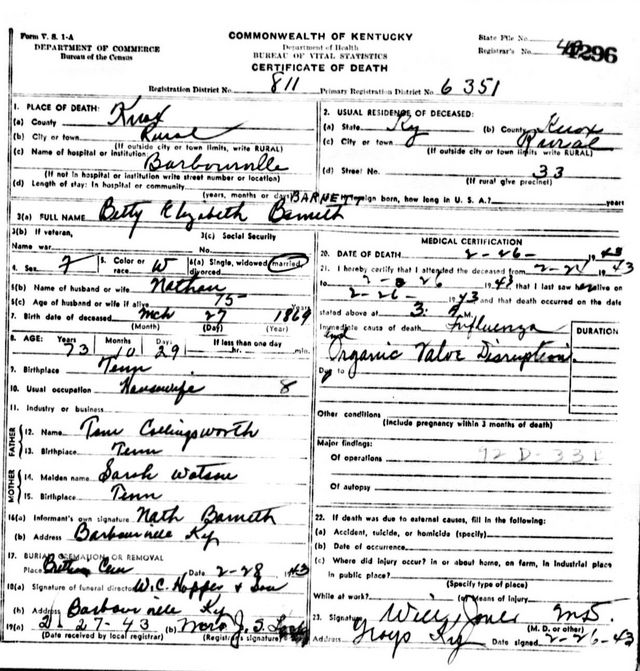 Form V. S. 1-A
DEPARTMENT OF COMMERCE
Bureau of the Census
COMMONWEALTH OF KENTUCKY
Department of Health
BUREAU OF VITAL STATISTICS
CERTIFICATE OF DEATH
State File No.
Registrar's No. 4296
Registration District No. 811 Primary Registration District No. 6351
1. PLACE OF DEATH:
(a) County Knox
(b) City or town Rural
(If outside city or town limits, write RURAL)
(c) Name of hospital or institution Barbourville
(If not in hospital or institution write street number or location)
(d) Length of stay: In hospital or community
(years, months or days)
2. USUAL RESIDENCE OF DECEASED:
(a) State Ky (b) County Knox
(c) City or town Rural
(If outside city or town limits write RURAL)
(d) Street No. 33
(If rural give precinct)
foreign born, how long in U. S. A.? years
BARNETT
3(a) FULL NAME Betty Elizabeth Barnett
3(b) If veteran,
Name war
3(c) Social Security
No.
4. Sex F 5. Color or race W 6(a) Single, widowed, married, divorced
6(b) Name of husband or wife Nathan
6(c) Age of husband or wife if alive 75 Years
7. Birth date of deceased Mch 27 1869
(Month) (Day) (Year)
8. AGE: Years Months Days If less than one day
73 10 29 hr. min.
9. Birthplace Tenn
10. Usual occupation Housewife 8
11. Industry or business
FATHER
12. Name Tom Collingsworth
13. Birthplace Tenn
MOTHER
14. Maiden name Sarah Watson
15. Birthplace Tenn
16(a) Informant's own signature Nath Barnett
(b) Address Barbourville Ky
17. BURIAL CREMATION OR REMOVAL
Place Date 2-28 1943
18(a) Signature of funeral director W. C. Hopper & Son
(b) Address Barbourville Ky
19(a) 2-27-43 (b) Mrs J. S.
(Date received by local registrar) (Registrar's signature)
MEDICAL CERTIFICATION
20. DATE OF DEATH 2-26- 1943
21. I hereby certify that I attended the deceased from 2-24 1943
to 2-26 1943 that I last saw her alive on
2-26- 1943 and that death occurred on the date
stated above at 3.
Immediate cause of death Influenza
and Organic Valve Disruption
Due to
DURATION
Other conditions
(Include pregnancy within 3 months of death)
Major findings:
Of operations
92 D-33B
Of autopsy
22. If death was due to external causes, fill in the following:
(a) Accident, suicide, or homicide (specify)
(b) Date of occurrence
(c) Where did injury occur? in or about home, on farm, in industrial place
in public place?
(Specify type of place)
While at work? (e) Means of injury
23. Signature Will Jones M.D.
(M. D. or other)
Address Grays Ky Date signed 2-26-43